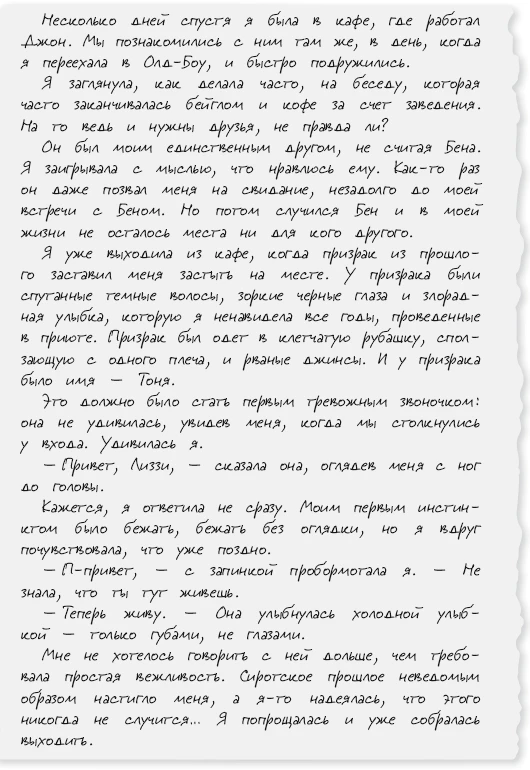 Несколько дней спустя я была в кафе, где работал
Джон. Мы познакомились с ним там же, в день, когда
я переехала в Олд-Боу, и быстро подружились.
Я заглянула, как делала часто, на беседу, которая
часто заканчивалась бейглом и кофе за счет заведения.
На то ведь и нужны друзья, не правда ли?
Он был моим единственным другом, не считая Бена.
Я заигрывала с мыслью, что нравлюсь ему. Как-то раз
он даже позвал меня на свидание, незадолго до моей
встречи с Беном. Но потом случился Бен и в моей
жизни не осталось места ни для кого другого.
Я уже выходила из кафе, когда призрак из прошло-
го заставил меня застыть на месте. У призрака были
спутанные темные волосы, зоркие черные глаза и злорад-
ная улыбка, которую я ненавидела все годы, проведенные
в приюте. Призрак был одет в клетчатую рубашку, спол-
зающую с одного плеча, и рваные джинсы. И у призрака
было имя — Тоня.
Это должно было стать первым тревожным звоночком:
она не удивилась, увидев меня, когда мы столкнулись
у входа. Удивилась я.
— Привет, Лиззи, — сказала она, оглядев меня с ног
до головы.
Кажется, я ответила не сразу. Моим первым инстин-
ктом было бежать, бежать без оглядки, но я вдруг
почувствовала, что уже поздно.
— П-привет, — с запинкой пробормотала я. — Не
знала, что ты тут живешь.
— Теперь живу. — Она улыбнулась холодной улыб-
кой — только губами, не глазами.
Мне не хотелось говорить с ней дольше, чем требо-
вала простая вежливость. Сиротское прошлое неведомым
образом настигло меня, а я-то надеялась, что этого
никогда не случится... Я попрощалась и уже собралась
выходить.